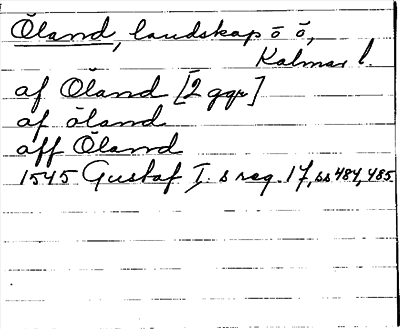 Öland, landskap o ö,
Kalmar l.
af Öland [2 ggr]
af öland
aff Öland
1545 Gustaf I. s reg. 17, ss 484, 485.